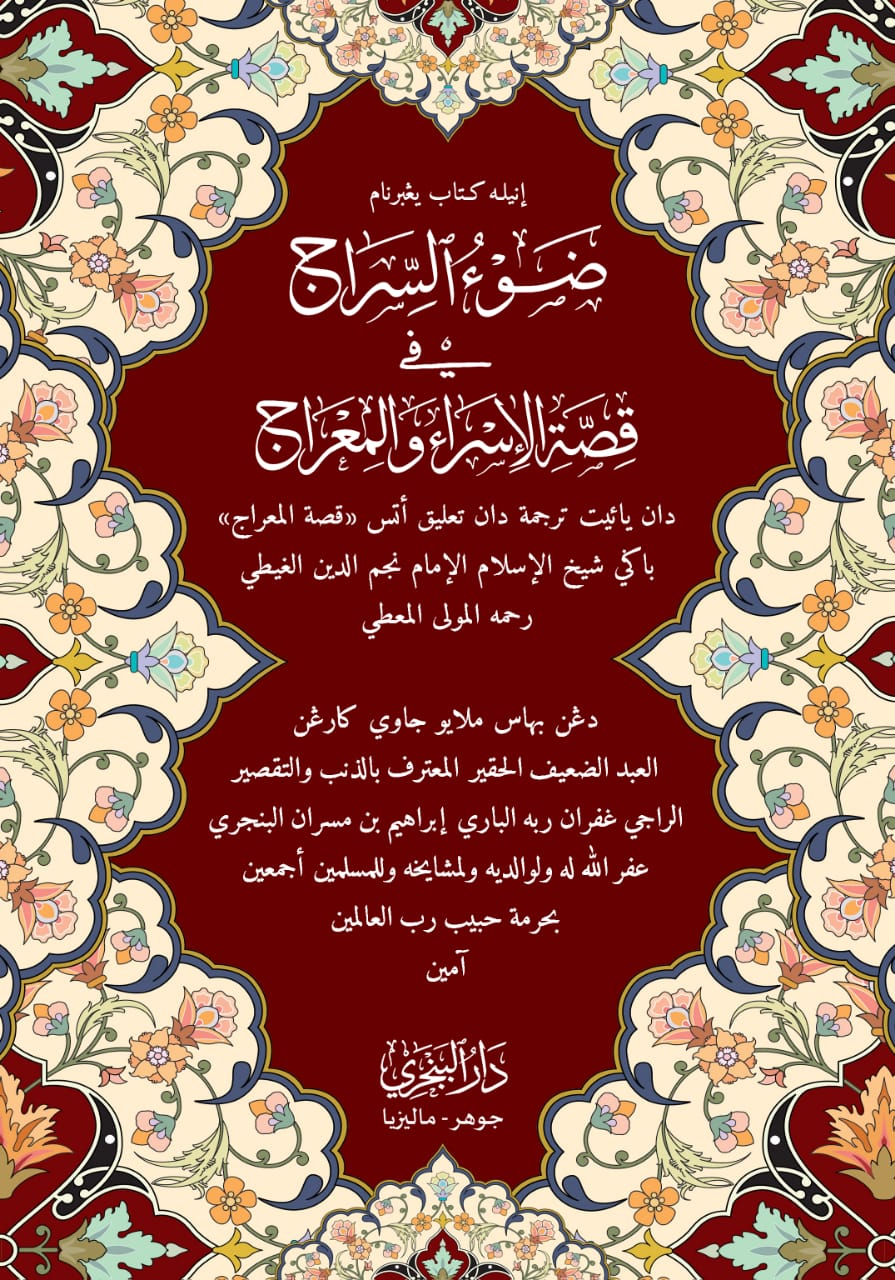 إنيله كتاب يڠبرنام
ضَوْءُ ٱلسِّرَاج
في
قِصَّةِ الْإِسْرَاءِ وَالْمِعْرَاج
دان يائيت ترجمة دان تعليق أتس «قصة المعراج»
باڬي شيخ الإسلام الإمام نجم الدين الغيطي
رحمه المولى المعطي
دڠن بهاس ملايو جاوي كارڠن
العبد الضعيف الحقير المعترف بالذنب والتقصير
الراجي غفران ربه الباري إبراهيم بن مسران البنجري
عفر الله له ولوالديه ولمشايخه وللمسلمين أجمعين
بحرمة حبيب رب العالمين
آمين
دَارُ ٱلْبَنْجَرِي
جوهر - ماليزيا